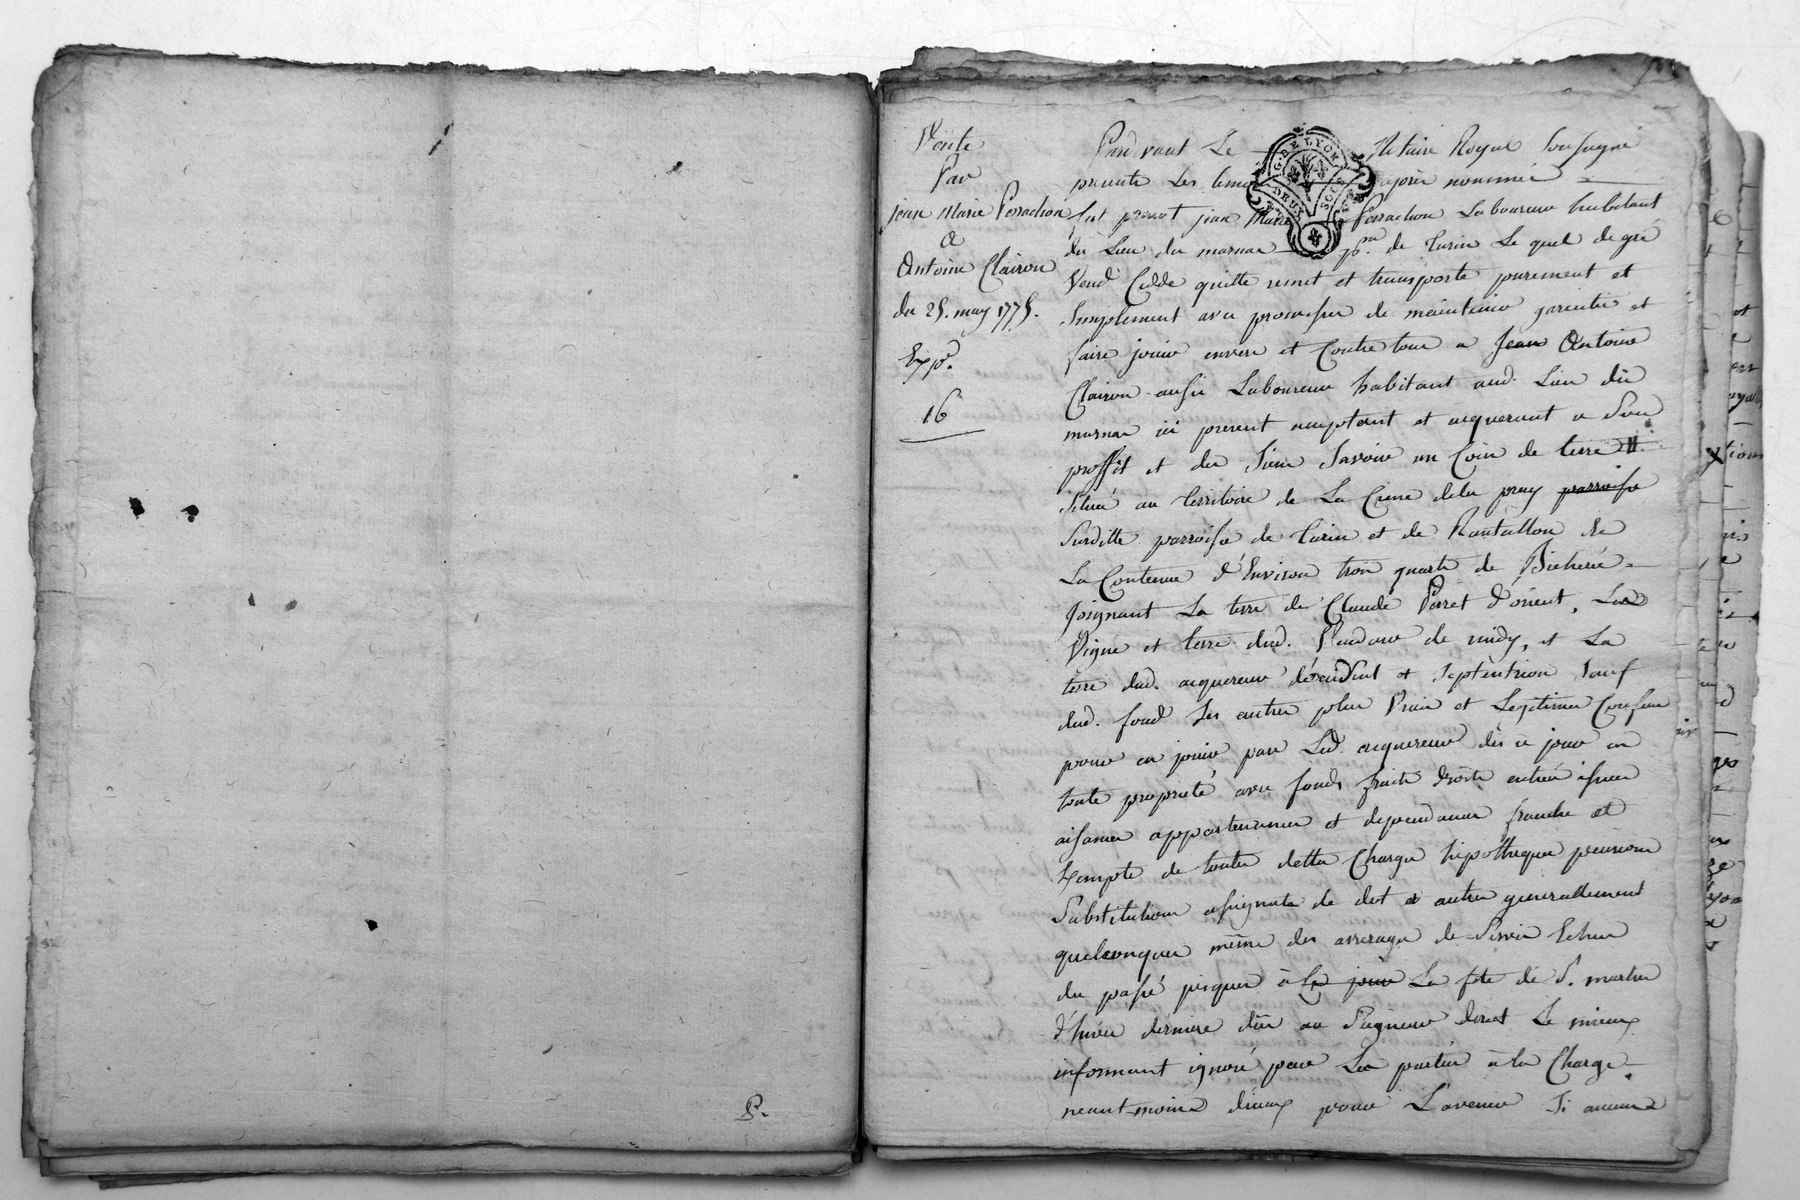 P.
Vente
Par
jean Marie Perrachon
a
Antoine Clairon
du 25. may 1775.
Exp.
16
G. DE LYON
DEUX SOLS
Pard vant Le Notaire Royal soussigné
presents les temo apres nommes
fut present jean Marie Perrachon Laboureur habitant
du Lieu du marnan psse. de Turin Le quel de gré
Vend Cedde quitte remet et transporte purement et
simplement avec promesse de maintenir garentir et
faire jouir envers et Contre tous a Jean Antoine
Clairon aussi Laboureur habitant aud. Lieu du
marnan ici present acceptant et acquerant a son
proffit et des siens savoir un Coin de terre
situé au territoire de La Creuse dela pray parroisse
Surditte parroisse de Turin et de Rontallon de
La Contenue d'Environ trois quarts de Bicherée
Joignant La terre de Claude Perret d'orient, Les
Vigne et terre dud. de midy, et La
terre dud. acquereur d'occident et Septentrion sauf
dud. fond Les autres plus Vrais et Legitimes Confins
pour en jouir par Led. acquereur dès ce jour en
toute propriété avec fonds fruits droits entrées issues
aisances appartenances et dependances franche et
Exempte de toutes dettes Charges hipotheques pensions
Substitutions assignats de dot et autres generallement
quelconques même des arrerages de servis Echus
du passé jusques à Ce jour La fête de St. martin
d'hiver derniere dûs au Seigneur direct Le mieux
informant ignoré par Les parties à la Charge
neant-moins d'iceux pour L'avenir si aucuns